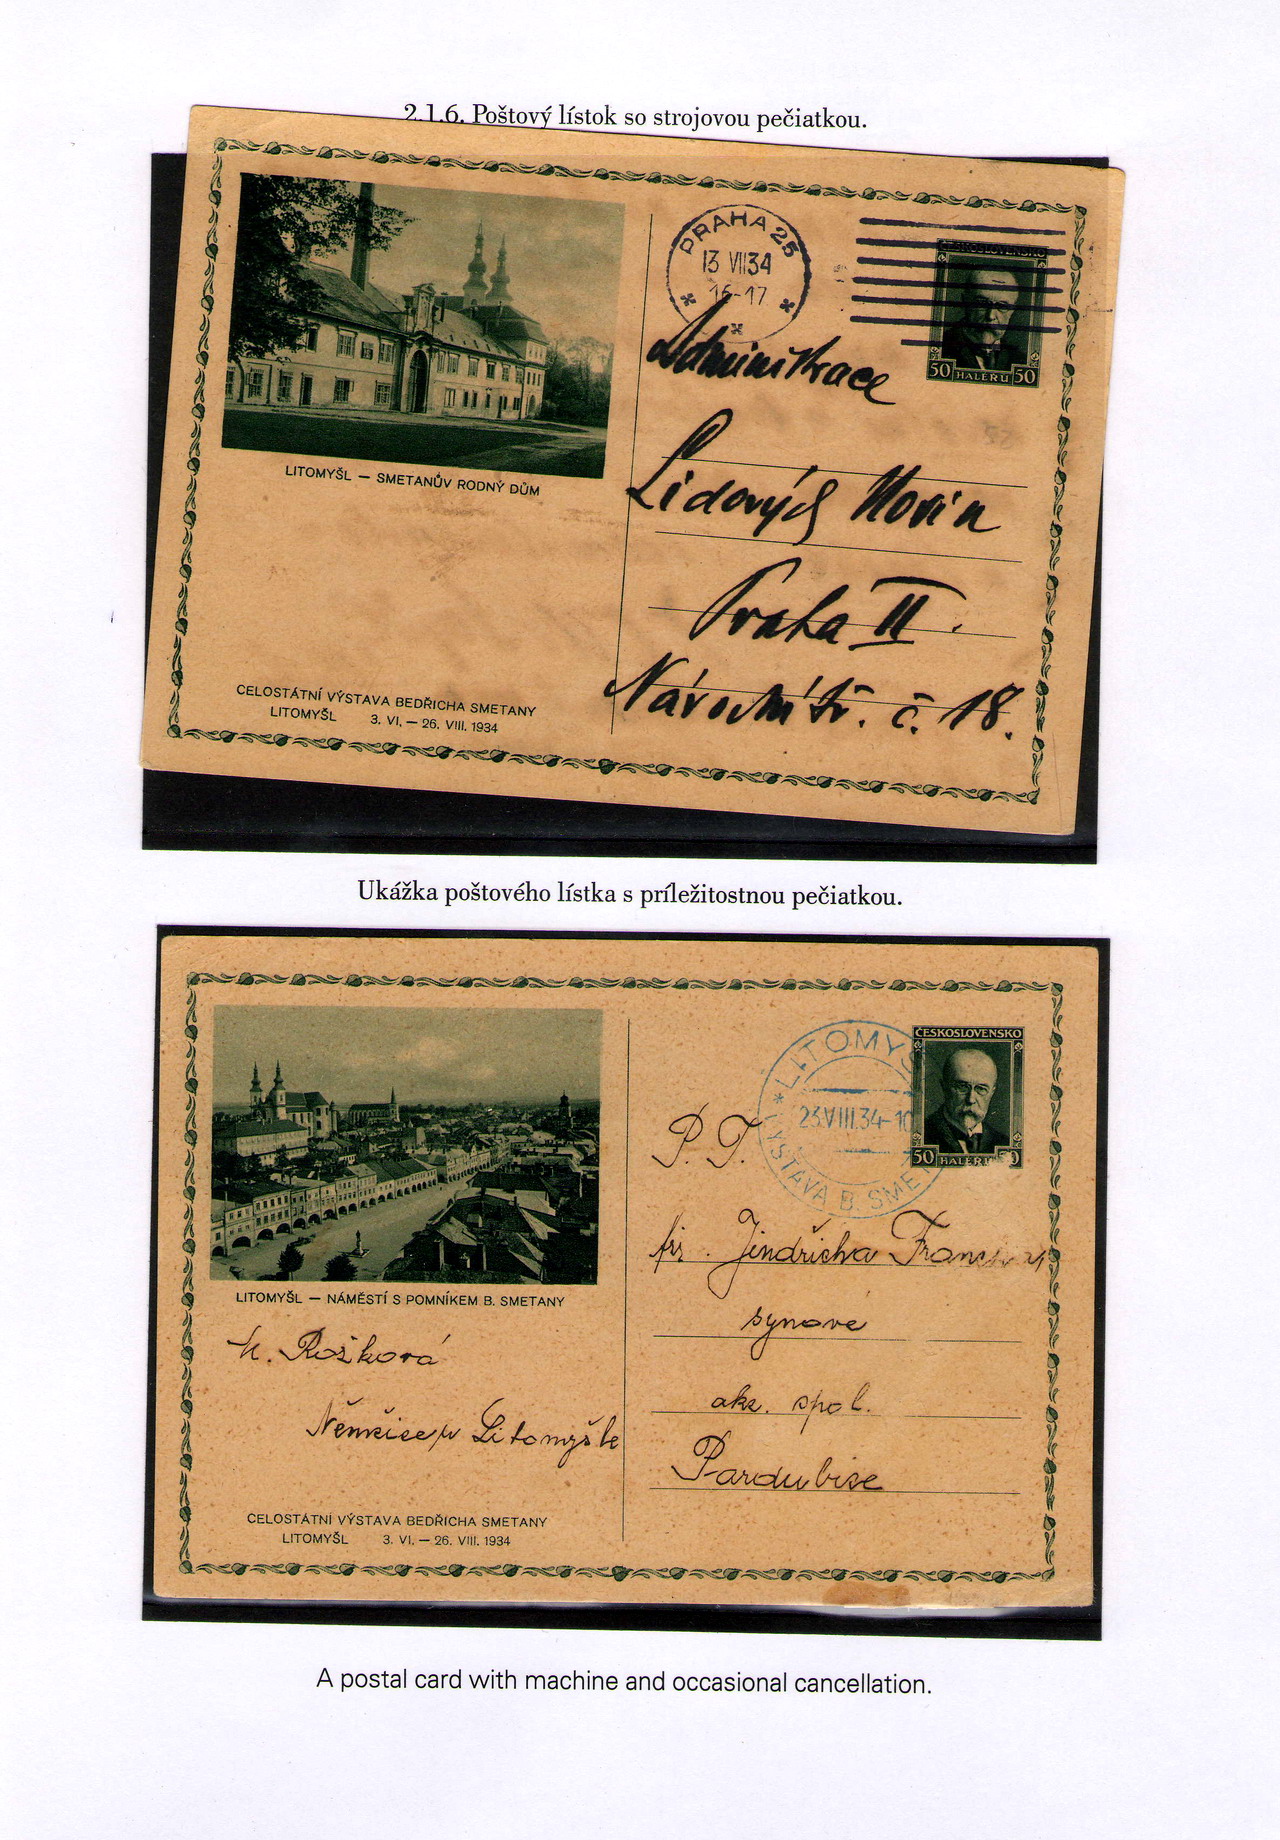 2.1.6. Poštový lístok so strojovou pečiatkou.
PRAHA 25
13 VII 34
16-17
ČESKOSLOVENSKO
50 HALÉRŮ 50
LITOMYŠL — SMETANŮV RODNÝ DŮM
Administrace
Lidových Novin
Praha II.
Národní tř. č. 18.
CELOSTÁTNÍ VÝSTAVA BEDŘICHA SMETANY
LITOMYŠL 3. VI. — 26. VIII. 1934
Ukážka poštového lístka s príležitostnou pečiatkou.
LITOMYŠ
23.VIII.34-10
VÝSTAVA B. SME
ČESKOSLOVENSKO
50 HALÉRŮ 50
LITOMYŠL — NÁMĚSTÍ S POMNÍKEM B. SMETANY
P. T.
fir. Jindřicha
synové
akc. spol.
Pardubice
Rožková
Němčice u Litomyšle
CELOSTÁTNÍ VÝSTAVA BEDŘICHA SMETANY
LITOMYŠL 3. VI. — 26. VIII. 1934
A postal card with machine and occasional cancellation.